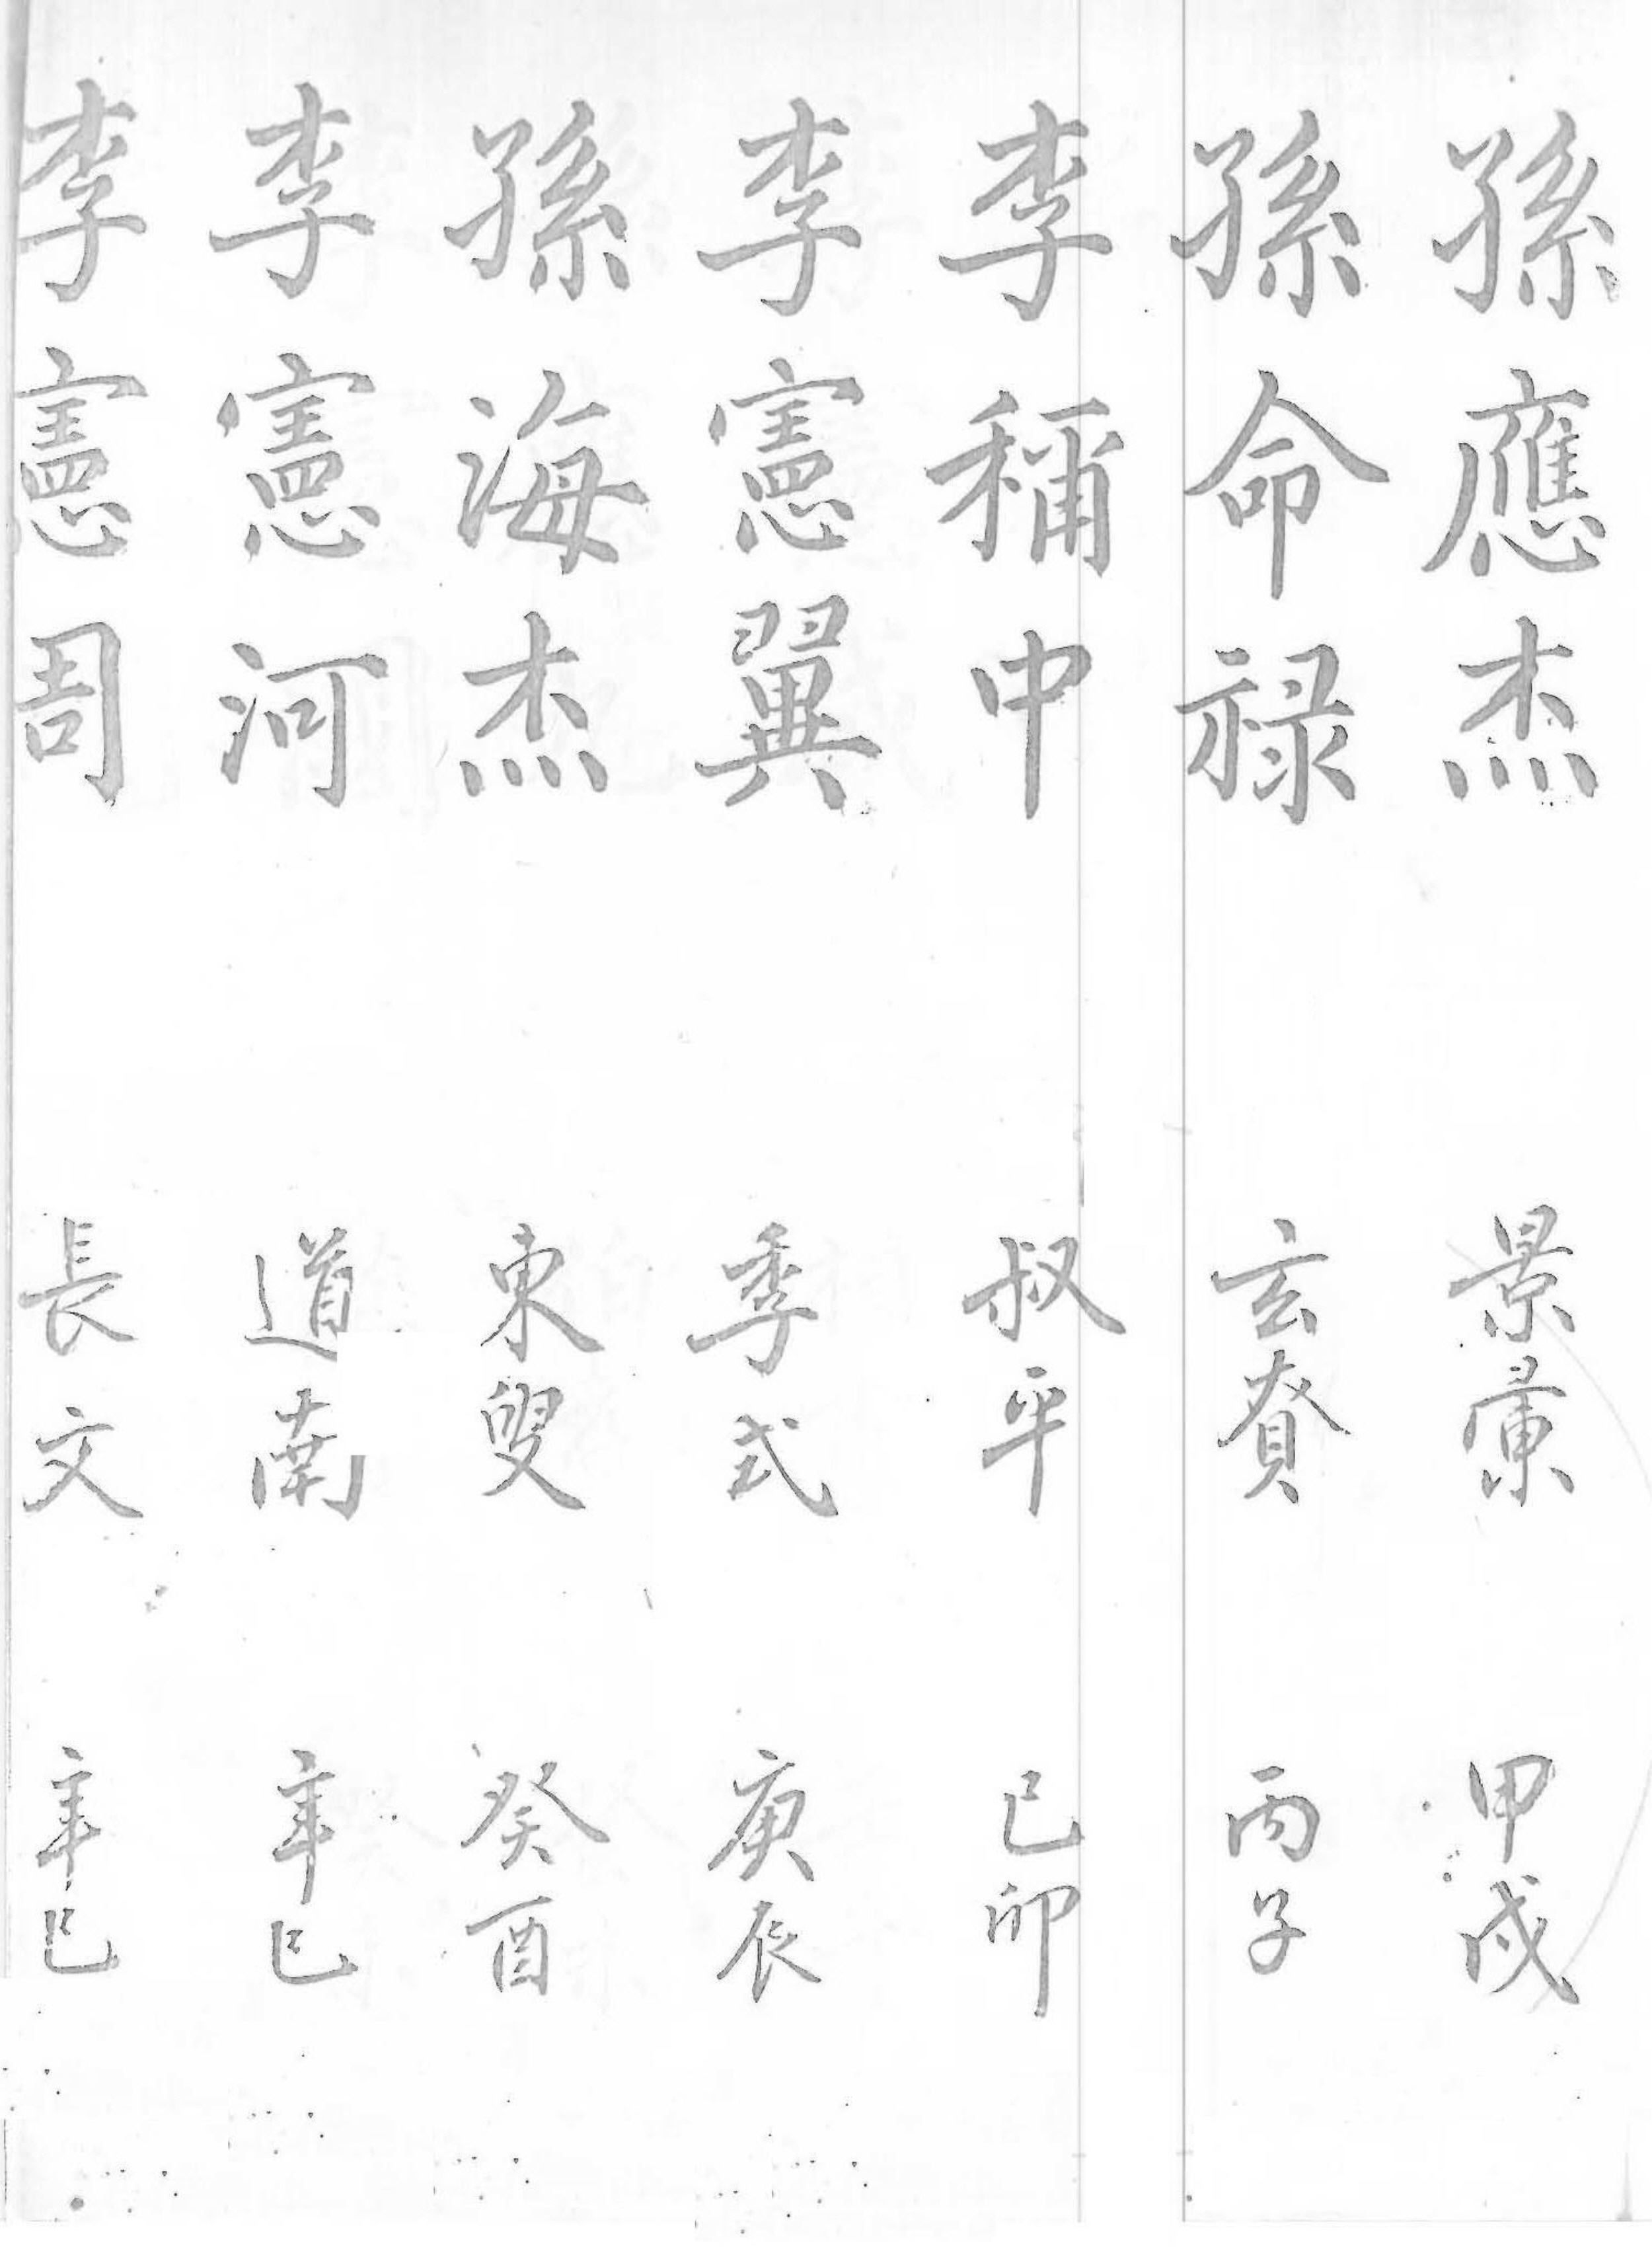 孫應杰 景彙 甲戌
孫命祿 玄賚 丙子
李稱中 叔平 己卯
李憲翼 季式 庚辰
孫海杰 東叟 癸酉
李憲河 道南 辛巳
李憲周 長文 辛巳